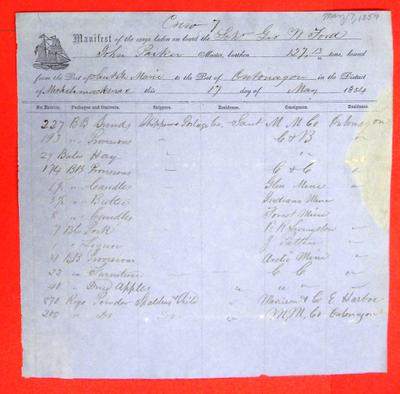 May 17, 1854
Crew 7
Manifest of the cargo laden on board the Schr Geo W Ford
John Parker Master, burthen 127.13 tons, bound
from the Port of Sault Ste Marie to the Port of Ontonagon in the District
of Michilimackinac this 17 day of May 1854
No. Entries. Packages and Contents. Shippers. Residence. Consignees. Residence.
227 BB Goods Chippewa Portage Co. Saut M M Co Ontonagon
193 " Provisions " C & B "
27 Bales Hay "
174 BB Provisions " C & C "
" Candles Glen Mine "
" Butter Indiana Mine
8 " Candles Forest Mine "
7 Bls Pork R R Livingston "
" Liquor J
4 BB Provisions Arctic Mine "
22 " Furniture C C "
40 " Dried Apples " "
570 Kegs Powder Spalding & Childs & Co E Harbor
200 " Do Do M. M. Co Ontonagon